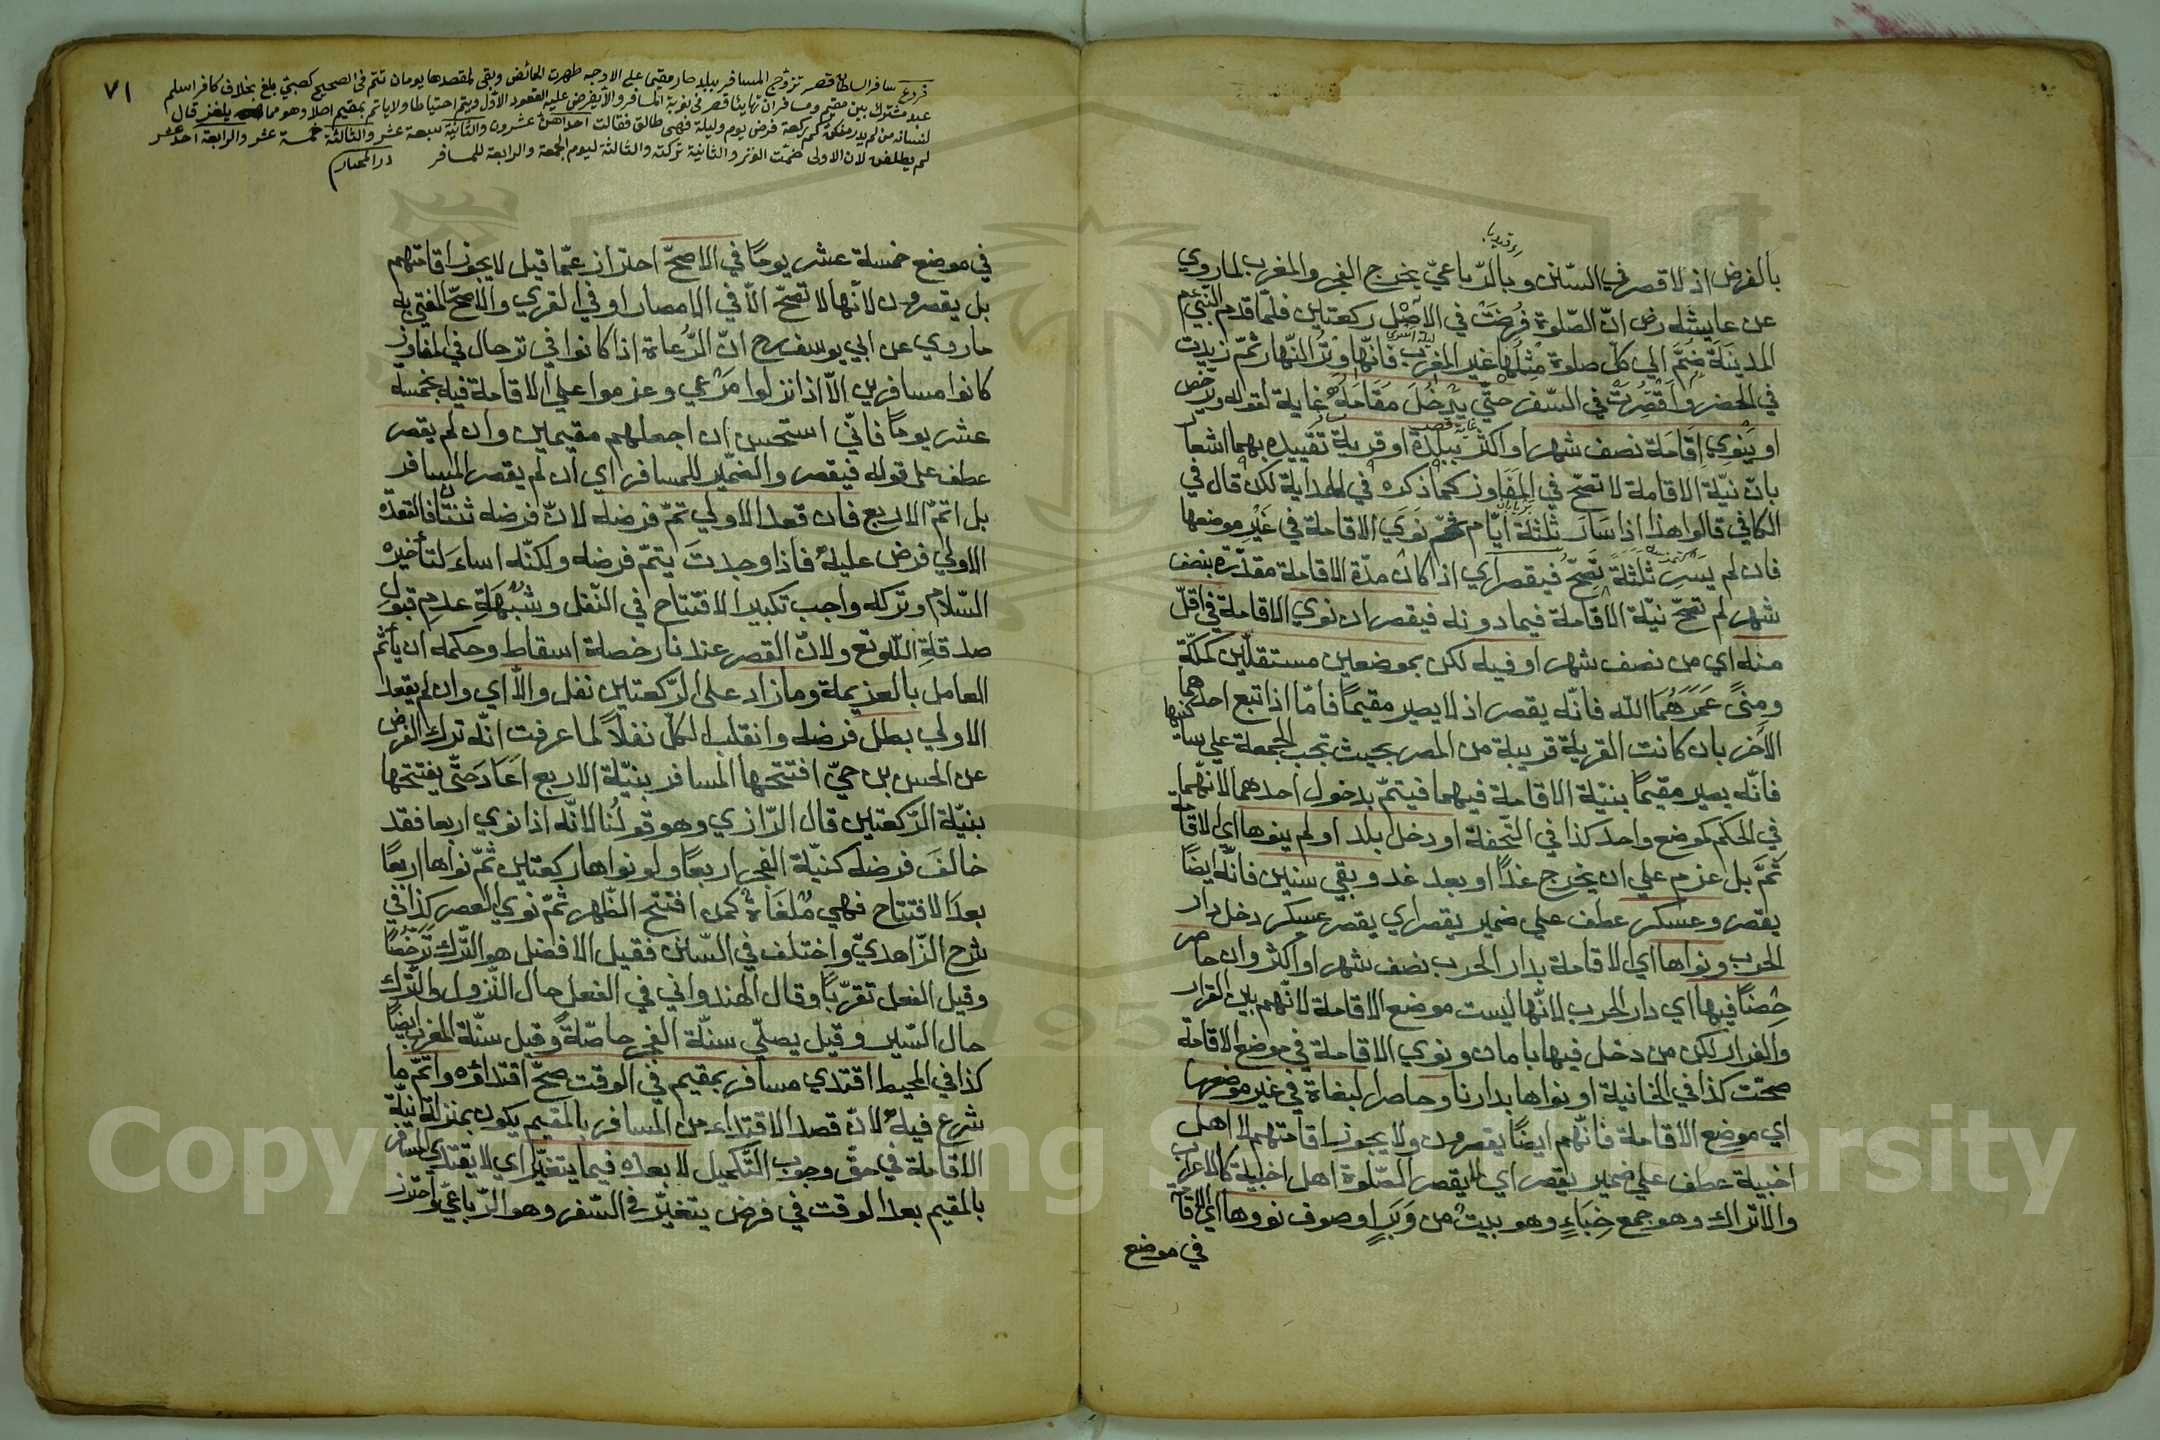 بالفرض اذ لا قصر في السنن وبالرباعي يخرج الفجر والمغرب لما روي
عن عايشة رض ان الصلوة فرضت في الاصل ركعتين فلما قدم النبي عم
المدينة ضم الي كل صلوة مثلها غير المغرب فانها وتر النهار ثم زيدت
في الحضر واقصرت في السفر حتي يدخل مقامه غاية لقوله ويرخص
او ينوي اقامة نصف شهر او اكثر ببلدة او قرية تقييده بهما اشعار
بان نية الاقامة لا تصح في المفاوز كما ذكره في الهداية لكن قال في
الكافي قالوا هذا اذا سار ثلثة ايام ثم نوي الاقامة في غير موضعها
فان لم يسر ثلثة تصح فيقصر اي اذا كان مدة الاقامة مقدرة بنصف
شهر لم تصح نية الاقامة فيما دونه فيقصر ان نوي الاقامة في اقل
منه اي من نصف شهر او فيه لكن بموضعين مستقلين كمكة
ومنى عمرهما الله فانه يقصر اذ لا يصير مقيما فاما اذا تبع احدهما
الاخر بان كانت القرية قريبة من المصر بحيث تجب الجمعة علي ساكنها
فانه يصير مقيما بنية الاقامة فيهما فيتم بدخول احدهما لانهما
في الحكم كموضع واحد كذا في التحفة او دخل بلدا ولم ينوها اي الاقامة
ثم بل عزم علي ان يخرج غدا او بعد غد وبقي سنين فانه ايضا
يقصر وعسكر عطف علي ضمير يقصر اي يقصر عسكر دخل دار
الحرب ونواها اي الاقامة بدار الحرب نصف شهر او اكثر وان حاصر
حصنا فيها اي دار الحرب لانها ليست موضع الاقامة لانهم بين القرار
والفرار لكن من دخل فيها بامان ونوي الاقامة في موضع الاقامة
صحت كذا في الخانية او نواها بدارنا وحاصر البغاة في غير موضعها
اي موضع الاقامة فانهم ايضا يقصرون ولا يجوز اقامتهم لا اهل
اخبية عطف علي ضمير يقصر اي لا يقصر الصلوة اهل اخبية كالاعراب
والاتراك وهو جمع خباء وهو بيت من وبر او صوف نووها اي الاقامة
في موضع
٧١
فروع سافر السلطان قصر تزوج المسافر ببلد صار مقيما على الاوجه طهرت الحائض وبقى لمقصدها يومان تتم فى الصحيح كصبي بلغ بخلاف كافر اسلم
عبد مشترك بين مقيم ومسافر ان تهايئا قصر فى نوبة المسافر والا يفرض عليه القعود الاول ويتم احتياطا ولا ياتم بمقيم اصلا وهو مما يلغز قال
لنسائه من لم يدر منكن كم ركعة فرض يوم وليلة فهى طالق فقالت احداهن عشرون والثانية سبعة عشر والثالثة خمسة عشر والرابعة احد عشر
لم يطلقن لان الاولى ضمت الوتر والثانية تركته والثالثة ليوم الجمعة والرابعة للمسافر در المختار
في موضع خمسة عشر يوما في الاصح احتراز عما قيل لا يجوز اقامتهم
بل يقصرون لانها لا تصح الا في الامصار او في القري والاصح المفتي به
ما روي عن ابي يوسف رح ان الرعاة اذا كانوا في ترحال في المفاوز
كانوا مسافرين الا اذا نزلوا مرعي وعزموا علي الاقامة فيه خمسة
عشر يوما فاني استحسن ان اجعلهم مقيمين وان لم يقصر
عطف على قوله فيقصر والضمير للمسافر اي ان لم يقصر المسافر
بل اتم الاربع فان قعد الاولي تم فرضه لان فرضه ثنتان فالقعدة
الاولي فرض عليه فاذا وجدت يتم فرضه ولكنه اساء لتأخيره
السلام وتركه واجب تكبير الافتتاح في النفل وشبهة عدم قبول
صدقة الله تع ولان القصر عندنا رخصة اسقاط وحكمه ان يأثم
العامل بالعزيمة وما زاد على الركعتين نفل والا اي وان لم يقعد
الاولي بطل فرضه وانقلب الكل نفلا لما عرفت انه ترك الفرض
عن الحسن بن حي افتتحها المسافر بنية الاربع اعاد حتى يفتتحها
بنية الركعتين قال الرازي وهو قولنا لانه اذا نوي اربعا فقد
خالف فرضه كنية الفجر اربعا ولو نواها ركعتين ثم نواها اربعا
بعد الافتتاح فهي ملغاة كمن افتتح الظهر ثم نوي العصر كذا في
شرح الزاهدي واختلف في السنن فقيل الافضل هو الترك ترخصا
وقيل الفعل تقربا وقال الهندواني في الفعل حال النزول والترك
حال السير وقيل يصلي سنة الفجر خاصة وقيل سنة المغرب ايضا
كذا في المحيط اقتدي مسافر بمقيم في الوقت صح اقتداؤه واتم ما
شرع فيه لان قصد الاقتداء من المسافر بالمقيم يكون بمنزلة نية
الاقامة في حق وجوب التكميل لا بعده فيما يتغير اي لا يقتدي المسافر
بالمقيم بعد الوقت في فرض يتغير في السفر وهو الرباعي واحترز